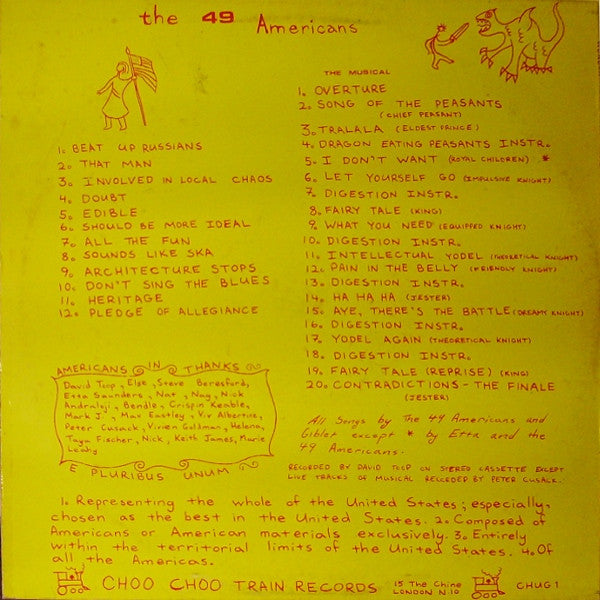 the 49 Americans
1. BEAT UP RUSSIANS
2. THAT MAN
3. INVOLVED IN LOCAL CHAOS
4. DOUBT
5. EDIBLE
6. SHOULD BE MORE IDEAL
7. ALL THE FUN
8. SOUNDS LIKE SKA
9. ARCHITECTURE STOPS
10. DON'T SING THE BLUES
11. HERITAGE
12. PLEDGE OF ALLEGIANCE
THE MUSICAL
1. OVERTURE
2. SONG OF THE PEASANTS
(CHIEF PEASANT)
3. TRALALA (ELDEST PRINCE)
4. DRAGON EATING PEASANTS INSTR.
5. I DON'T WANT (ROYAL CHILDREN) *
6. LET YOURSELF GO (IMPULSIVE KNIGHT)
7. DIGESTION INSTR.
8. FAIRY TALE (KING)
9. WHAT YOU NEED (EQUIPPED KNIGHT)
10. DIGESTION INSTR.
11. INTELLECTUAL YODEL (THEORETICAL KNIGHT)
12. PAIN IN THE BELLY (FRIENDLY KNIGHT)
13. DIGESTION INSTR.
14. HA HA HA (JESTER)
15. AYE, THERE'S THE BATTLE (DREAMY KNIGHT)
16. DIGESTION INSTR.
17. YODEL AGAIN (THEORETICAL KNIGHT)
18. DIGESTION INSTR.
19. FAIRY TALE (REPRISE) (KING)
20. CONTRADICTIONS - THE FINALE
(JESTER)
AMERICANS IN THANKS
David Toop, Else, Steve Beresford,
Etta Saunders, Nat, Nag, Nick
Andraloji, Bendle, Crispin Keable,
Mark J, Max Eastley, Viv Albertine,
Peter Cusack, Vivien Goldman, Helena,
Taya Fischer, Nick, Keith James, Marie
Leahy
E PLURIBUS UNUM
All Songs by The 49 Americans and
Giblet except * by Etta and the
49 Americans.
RECORDED BY DAVID TOOP ON STEREO CASSETTE EXCEPT
LIVE TRACKS OF MUSICAL RECORDED BY PETER CUSACK.
1. Representing the whole of the United States; especially,
chosen as the best in the United States. 2. Composed of
Americans or American materials exclusively. 3. Entirely
within the territorial limits of the United States. 4. Of
all the Americas.
CHOO CHOO TRAIN RECORDS 15 The Chine LONDON N10 CHUG 1